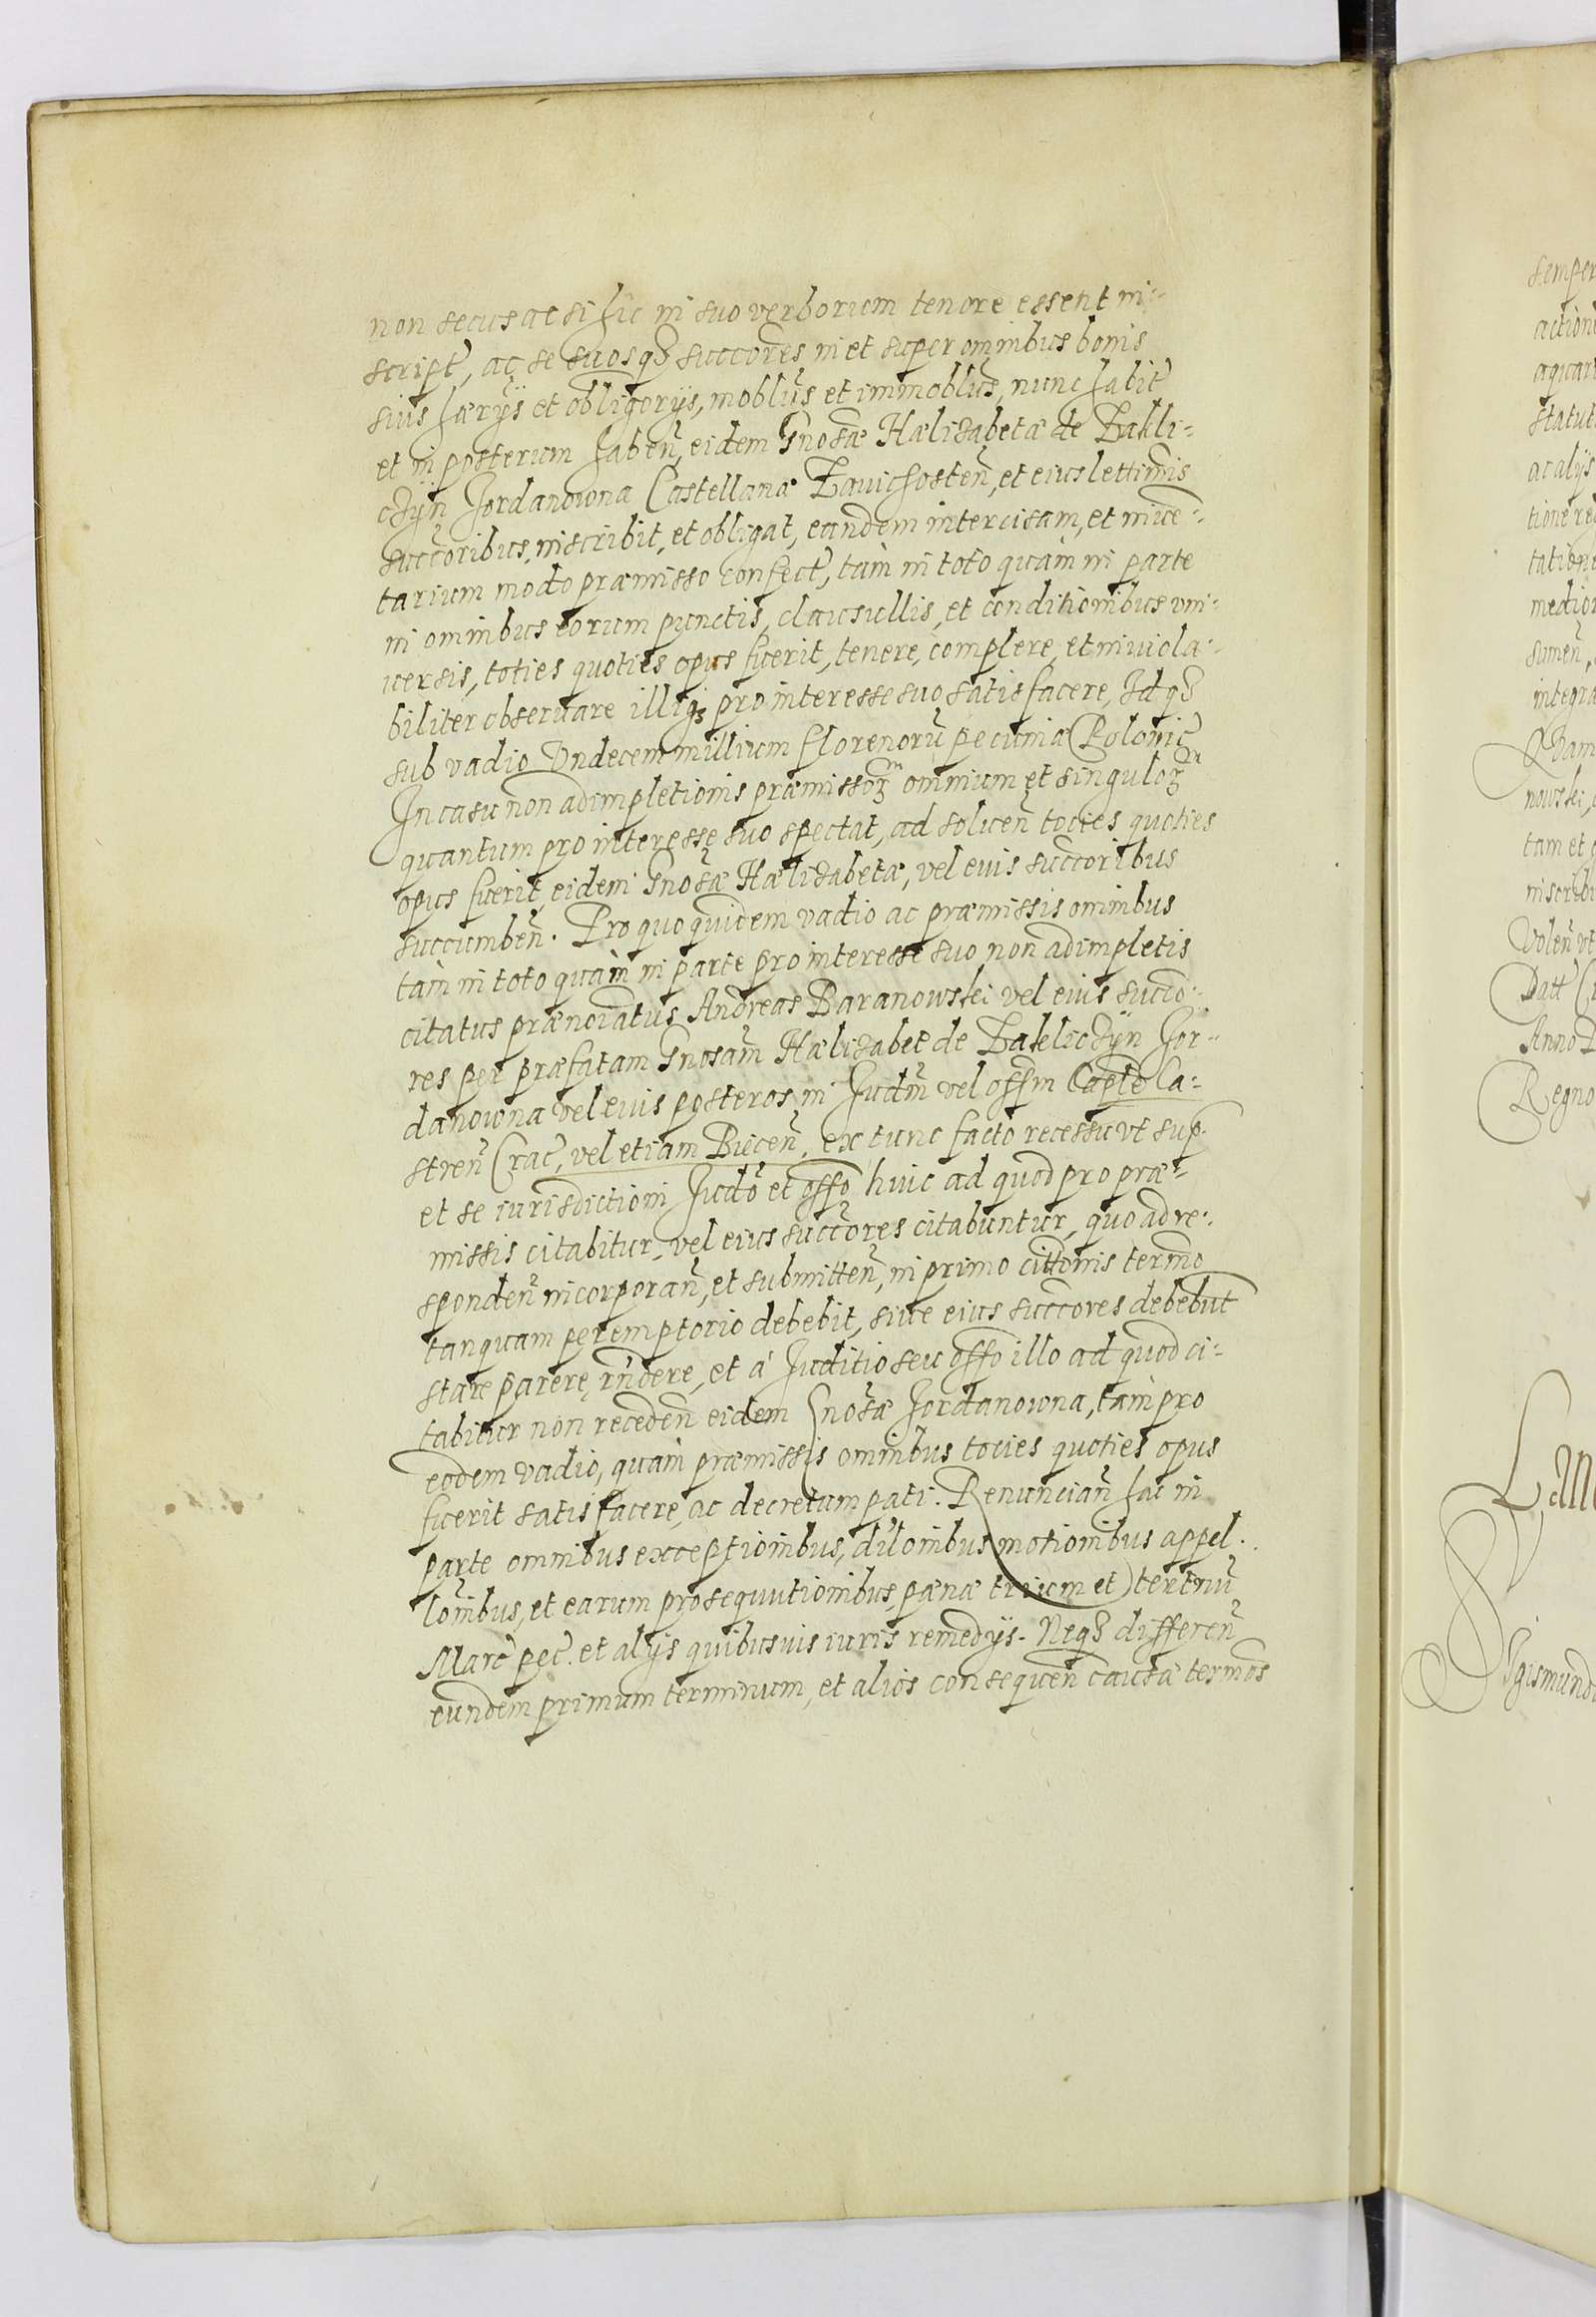 non secus ac si hic in suo verborum tenore essent in-
script̃, ac se suosqȝ succores in et super omnibus bonis
suis hærijs et obligorijs, moblib9 et immoblib9, nunc habit̃
et in posterum haben̄, eidem Gnosæ Hælisabetæ de Zakli-
czyn Jordanowna Castellanæ Zavichosten̄, et eius lettimis
succoribus, inscribit, et obligat, eandem intercisam, et inve-
tarium modo præmisso confect̃, tàm in toto quàm in parte
in omnibus eorum punctis, clausullis, et conditionibus vni-
uersis, toties quoties opus fuerit, tenere, complere, et inviola-
biliter obseruare illiqȝ pro interesse suo satisfacere, Idqȝ
sub vadio Vndecem millium florenorū pecuniæ Polonic̃
In casu non adimpletionis præmissoȝ omnium et singuloȝ
quantum pro interesse suo spectat, ad soluen̄ tocies quoties
opus fuerit, eidem Gnosæ Hælisabetæ, vel euis succoribus
succumben̄. Pro quo quidem vadio ac præmissis omnibus
tàm in toto quàm in parte pro interesse suo non adimpletis
citatus prænoiatus Andreas Baranowski vel eius succo-
res per præfatam Gnosam Hælisabet de Zakliczyn Jor-
danowna vel euis posteros, in Judm̄ vel offm̄ Captle Ca-
stren̄ Crac̃, vel etiam Biecen̄, ex tunc facto recessu vt sup.
et se iurisdictioni Judō et offō huic ad quod pro præ-
missis citabitur, vel eius succores citabuntur, quo ad re-
sponden̄ incorporan̄, et submitten̄, in primo cittonis termo
tanquam peremptorio debebit, siue eius succores debebūt
stare parere, rn̄dere, et à Juditio seu offō illo ad quod ci-
tabitur non receden̄ eidem Gnosæ Jordanowna, tàm pro
eodem vadio, quàm præmissis omnibus tocies quoties opus
fuerit satisfacere, ac decretum pati. Renuncian̄ hac in
parte omnibus exceptionibus, dilonibus motionibus appel-
lonibus, et earum prosequutionibus, pænæ trium et
Marc̃ pec̃. et alijs quibusuis iuris remedijs. Neqȝ differen̄
eundem primum terminum, et alios consequen̄ causæ termos